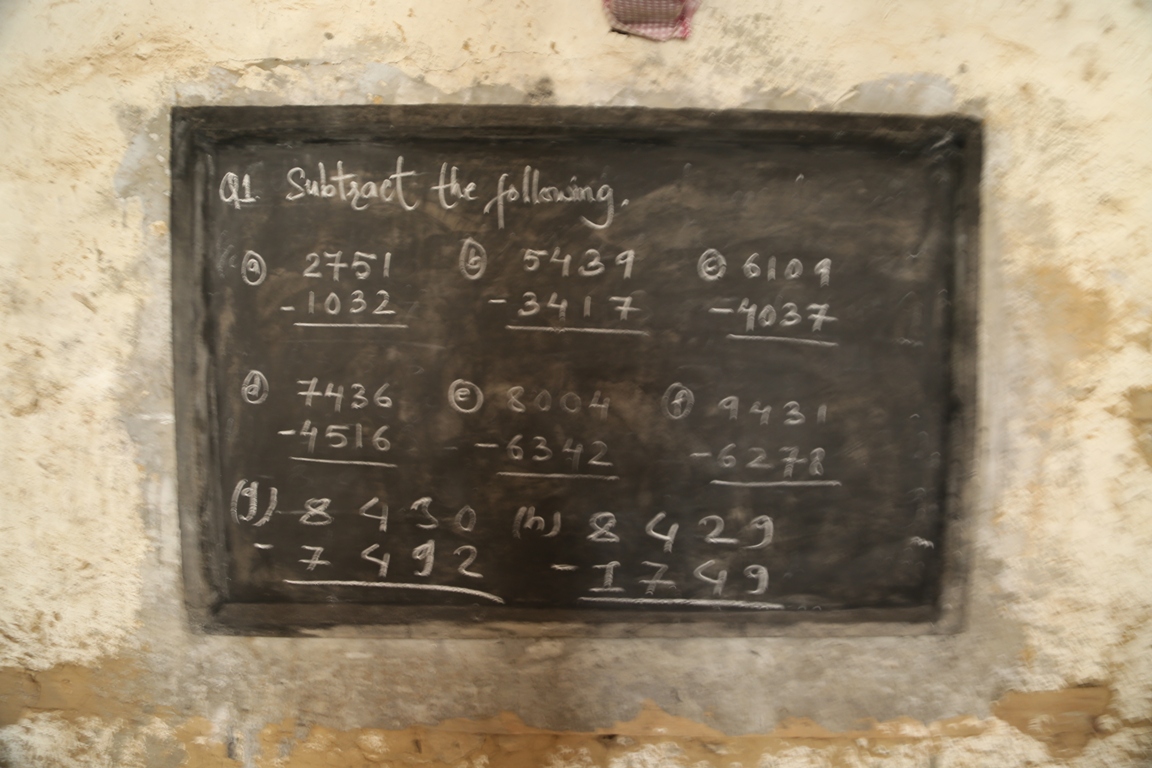 Q1. Subtract the following.
(a) 2751 (b) 5439 (c) 6109
-1032 -3417 -4037
(d) 7436 (e) 8004 (f) 9431
-4516 -6342 -6278
(g) 8430 (h) 8429
-7492 -1749